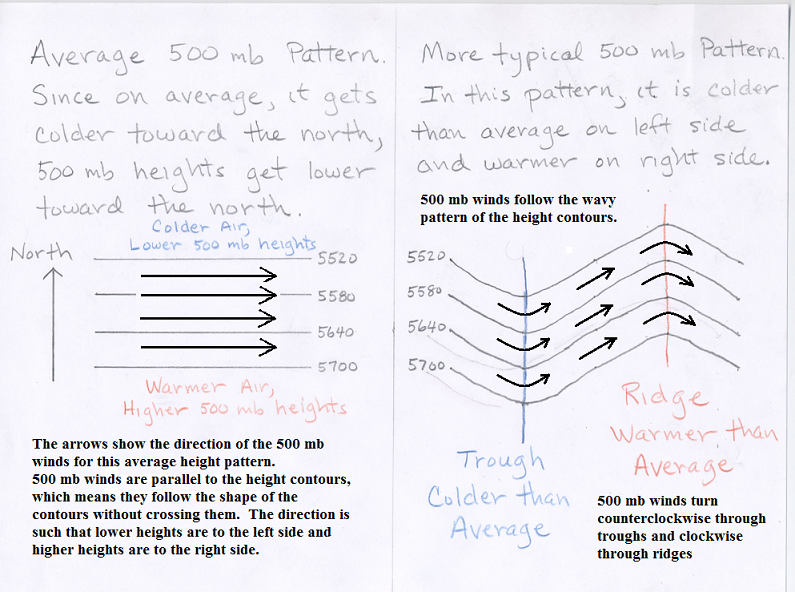 Average 500 mb Pattern.
Since on average, it gets
colder toward the north,
500 mb heights get lower
toward the north.
Colder Air,
Lower 500 mb heights
North
5520
5580
5640
5700
Warmer Air,
Higher 500 mb heights
The arrows show the direction of the 500 mb
winds for this average height pattern.
500 mb winds are parallel to the height contours,
which means they follow the shape of the
contours without crossing them.  The direction is
such that lower heights are to the left side and
higher heights are to the right side.
More typical 500 mb Pattern.
In this pattern, it is colder
than average on left side
and warmer on right side.
500 mb winds follow the wavy
pattern of the height contours.
5520
5580
5640
5700
Trough
Colder than
Average
Ridge
Warmer than
Average
500 mb winds turn
counterclockwise through
troughs and clockwise
through ridges